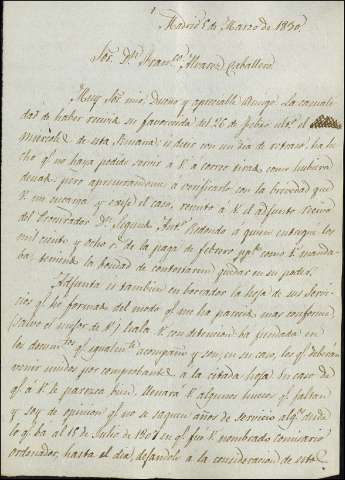 Madrid 5 de Marzo de 1830.
Sor. Dn. Franco. Alvarez Caballero
Muy Sor. mio, Dueño y apreciable Amigo: La casuali-
dad de haber recivido su favorecida del 26 de Febro. ulto. el
Miercoles de esta Semana, es decir con un dia de retraso, ha he-
cho qe. no haya podido servir á V. á correo tirado, como hubiera
deseado. Pero apresurandome á verificarlo con la brevedad que
V. me encarga y exije el caso, remito á V. el adjunto Recivo
del Procurador Dn. Segundo Anto. Redondo á quien entregué los
mil ciento y ocho rs. de la paga de febrero ppdo. como V. manda-
ba, teniendo la bondad de contestarme quedar en su poder.
Adjunta és tambien en borrador la hoja de sus Servi-
cios qe. he formado del modo qe. me ha parecido mas conforme
(salvo el mejor de V.) Hala V. con detencion ba fundada en
los documtos. qe. igualmte. acompaño y son, en su caso, los qe. deberan
venir unidos por comprobante á la citada hoja en caso de
qe. á V. le parezca bien. Llenará V. algunos huecos qe. faltan
y soy de opinion qe. no se saquen años de Servicio algo. desde
lo qe. ba al 15 de Julio de 1808 en qe. fué V. nombrado comisario
ordenador, hasta el dia, dejandolo á la consideracion de esta